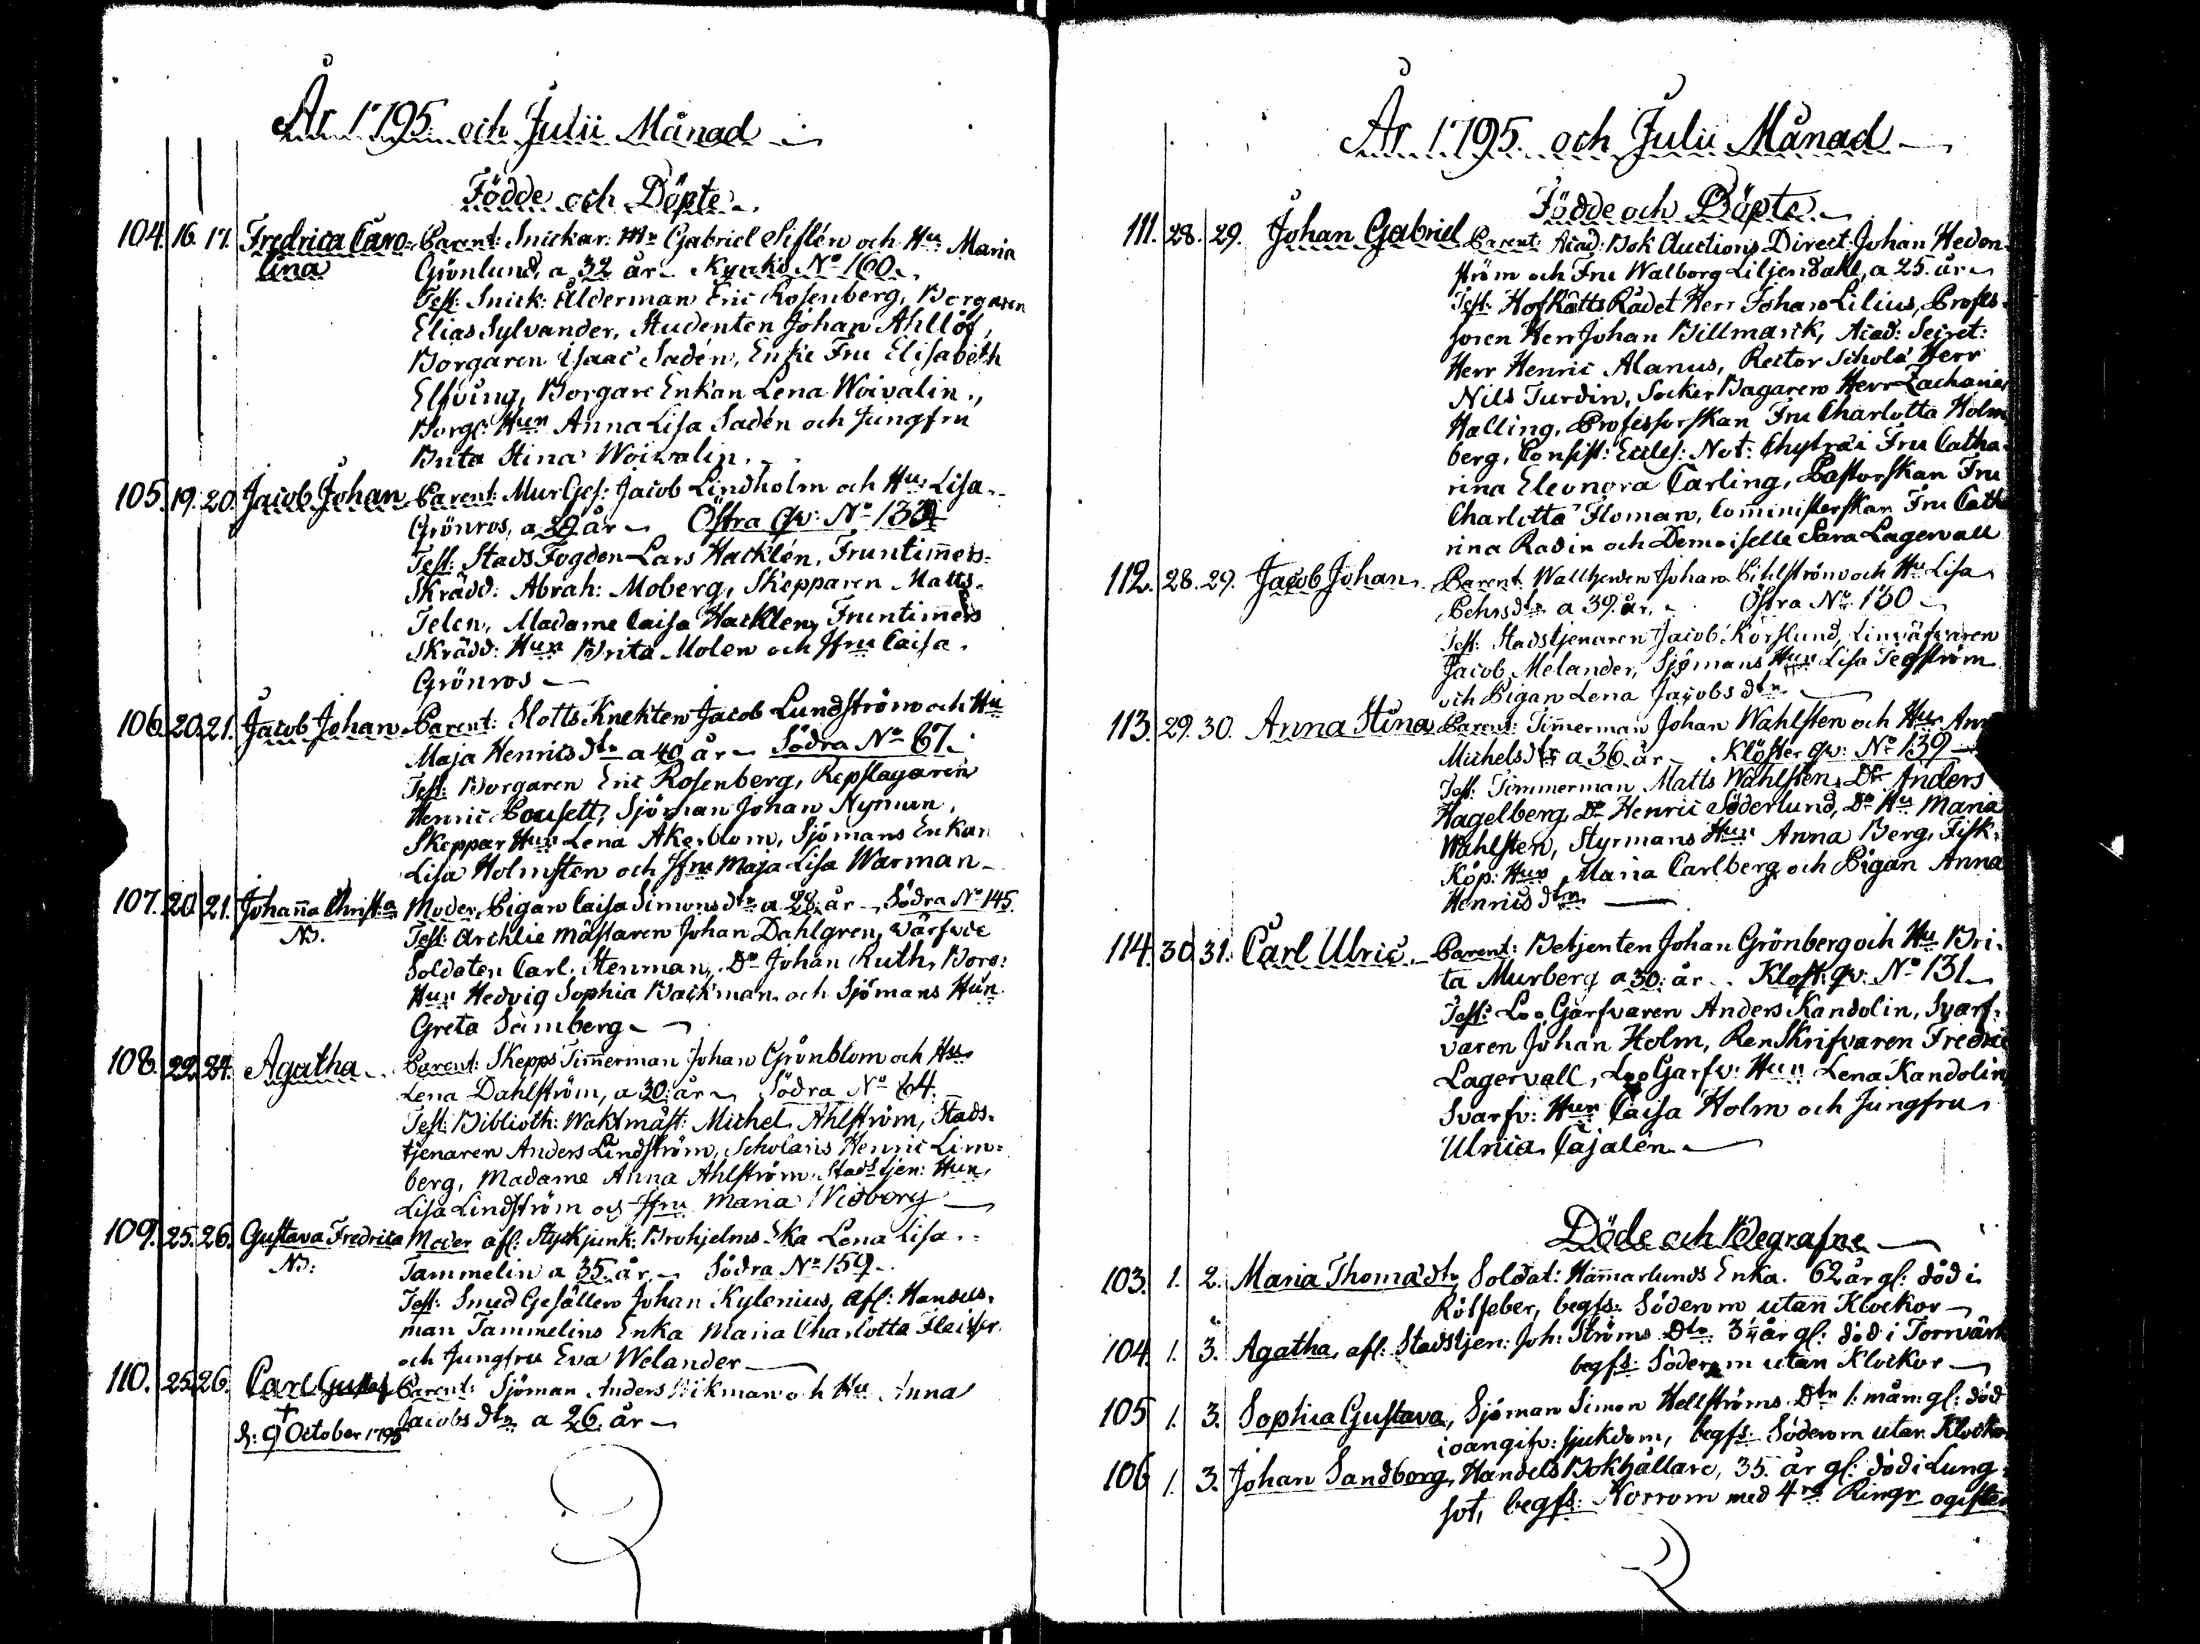 År 1795. och Julii Månad
Födde och Döpte.
104. 16. 17. Fredrica Caro= Parent: Snickar: Mr Gabriel Siflén och Hu Maria
lina Grönlund, a 32 år Kyrko No 160.
Test: Snick: Ålderman Eric Rosenberg, Borgaren
Elias Sylvander, Studenten Johan Ahllöf,
Borgaren Isaac Sadén, Enke Fru Elisabeth
Elfving, Borgare Enkan Lena Woivalin,
Borg: Hun Anna Lisa Sadén och Jungfru
Brita Stina Woivalin.
105. 19. 20. Jacob Johan Parent: MurGes: Jacob Lindholm och Hu Lisa
Grönros, a 29 år Östra Qv: No
Test: StadsFogden Lars Hacklén, Fruntimers=
Skrädd: Abrah: Moberg, Skepparen Matts
Telen, Madame Caisa Hacklen, Fruntimers
Skrädd: Hun Brita Molen och Jfru Caisa
Grönros
106. 20. 21. Jacob Johan Parent: SlottsKnekten Jacob Lundström och Hu
Maja Henricsdtr a 40 år Södra No 67.
Test: Borgaren Eric Rosenberg, Repslagaren
Henric Sjöman Johan Nyman,
Skeppar Hun Lena Åkerblom, Sjömans Enkan
Lisa Holmsten och Jfru Maja Lisa Warman
107. 20. 21. Johanna Christina Moder, Pigan Caisa Simonsdtr a 28. år Södra No 145.
NB. Test: Archlie mästaren Johan Dahlgren, Värfvde
Soldaten Carl Stenman, Do Johan Ruth, Borg:
Hun Hedvig Sophia Backman och Sjömans Hun
Greta
108. 22. 24. Agatha Parent: Skepps Timerman Johan Grönblom och Hu
Lena Dahlström, a 30. år Södra No 64.
Test: Biblioth: Waktmäst: Michel Ahlström, Stads=
tjenaren Anders Lindström, Scholaris Henric Lim=
berg, Madame Anna Ahlström, Stadstjen: Hun
Lisa Lindström och Jfru Maria Widberg
109. 25. 26. Gustava Fredrica Moder afl: Styckjunk: Brohjelms Eka Lena Lisa
NB: Tammelin a 35. år Södra No 159.
Test: Smed Gesällen Johan Kylenius, afl: Handels=
man Tammelins Enka Maria Charlotta
och Jungfru Eva Welander
110. 25. 26. Carl Gustaf Parent: Sjöman Anders Wikman och Hu Anna
Jacobsdtr a 26. år
† d: 9 October 1795
År 1795. och Julii Månad
Födde och Döpte
111. 28. 29. Johan Gabriel Parent: Acad: Bok Auctions Direct: Johan Heden=
ström och Fru Walborg Liljendahl, a 25. år
Test: HofRättsRådet Herr Johan Lilius, Profes=
soren Herr Johan Billmark, Acad: Secret:
Herr Henric Alanus, Rector Scholæ Herr
Nils Turdin, Socker Bagaren Herr Zacharias
Halling, Professorskan Fru Charlotta Holm
berg, Consist: Eccles: Not: Chytræi Fru Catha=
rina Eleonora Carling, Pastorskan Fru
Charlotta Floman, Coministerskan Fru Catha
rina Radin och Demoiselle Sara Lagervall
112. 28. 29. Jacob Johan. Parent. Johan Pihlström och Hu Lisa
Pehrsdtr a 39. år. Östra No 130
Test: Stadstjenaren Jacob Korslund, Linväfvaren
Jacob Melander, Sjömans Hun Lisa Tegström
och Pigan Lena Jacobsdtr
113. 29. 30. Anna Stina Parent: Timerman Johan Wahlsten och Hu Anna
Michelsdtr a 36 år Klöster qv: No 139
Test: Timmerman Matts Wahlsten, Do Anders
Hagelberg, Do Henric Söderlund, Do Hu Maria
Wahlsten, Styrmans Hun Anna Berg, Fisk=
Köp: Hun Maria Carlberg och Pigan Anna
Henricsdtr
114. 30. 31. Carl Ulric Parent: Betjenten Johan Grönberg och Hu Bri=
ta Murberg a 30. år Klost: qv: No 131
Test: LooGarfvaren Anders Kandolin, Svarf=
varen Johan Holm, RenSkrifvaren Fredric
Lagervall, LooGarfv: Hun Lena Kandolin,
Svarfv: Hun Caisa Holm och Jungfru
Ulrica Cajalén
Döde och Begrafne
103. 1. 2. Maria Thomædtr, Soldat: Hammarlunds Enka. 62 år gl: död i
Rötfeber, begfs: Söderom utan Klockor
104. 1. 3. Agatha, afl: Stadstjen: Joh: Ströms Dtr 3¼ år gl: död i Torrvärk
begfs: Söderom utan Klockor
105 1. 3. Sophia Gustava, Sjöman Simon Hellströms Dtr 1. mån: gl: död
i oangifv: sjukdom, begfs: Söderom utan Klockor
106 1. 3. Johan Sandberg, Handels Bokhållare, 35. år gl: död i Lung=
sot, begfs: Norrom med 4ra Ringr ogifter